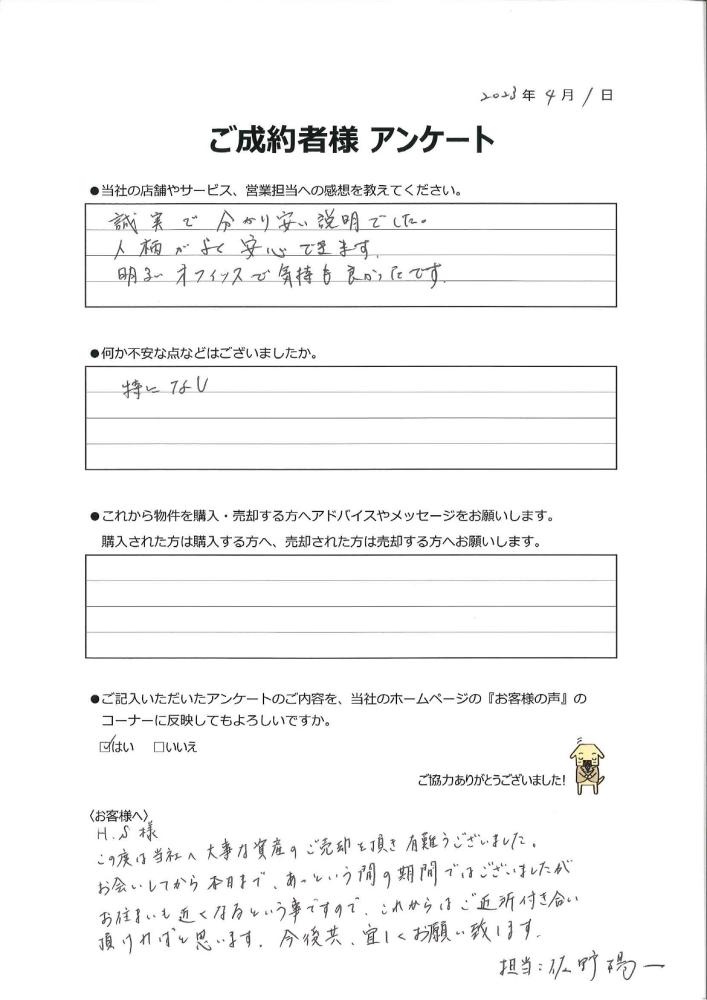 2023年 4月 1日
ご成約者様 アンケート
●当社の店舗やサービス、営業担当への感想を教えてください。
誠実で分かり安い説明でした。
人柄がよく安心できます。
明るいオフィッスで気持も良かったです。
●何か不安な点などはございましたか。
特になし
●これから物件を購入・売却する方へアドバイスやメッセージをお願いします。
購入された方は購入する方へ、売却された方は売却する方へお願いします。
●ご記入いただいたアンケートのご内容を、当社のホームページの『お客様の声』の
コーナーに反映してもよろしいですか。
☑はい □いいえ
ご協力ありがとうございました!
〈お客様へ〉
H.S様
この度は当社へ大事な資産のご売却を頂き有難うございました。
お会いしてから本日まで、あっという間の期間ではございましたが
お住まいも近くなるという事ですので、これからはご近所付き合い
頂ければと思います。今後共、宜しくお願い致します。
担当:佐野陽一